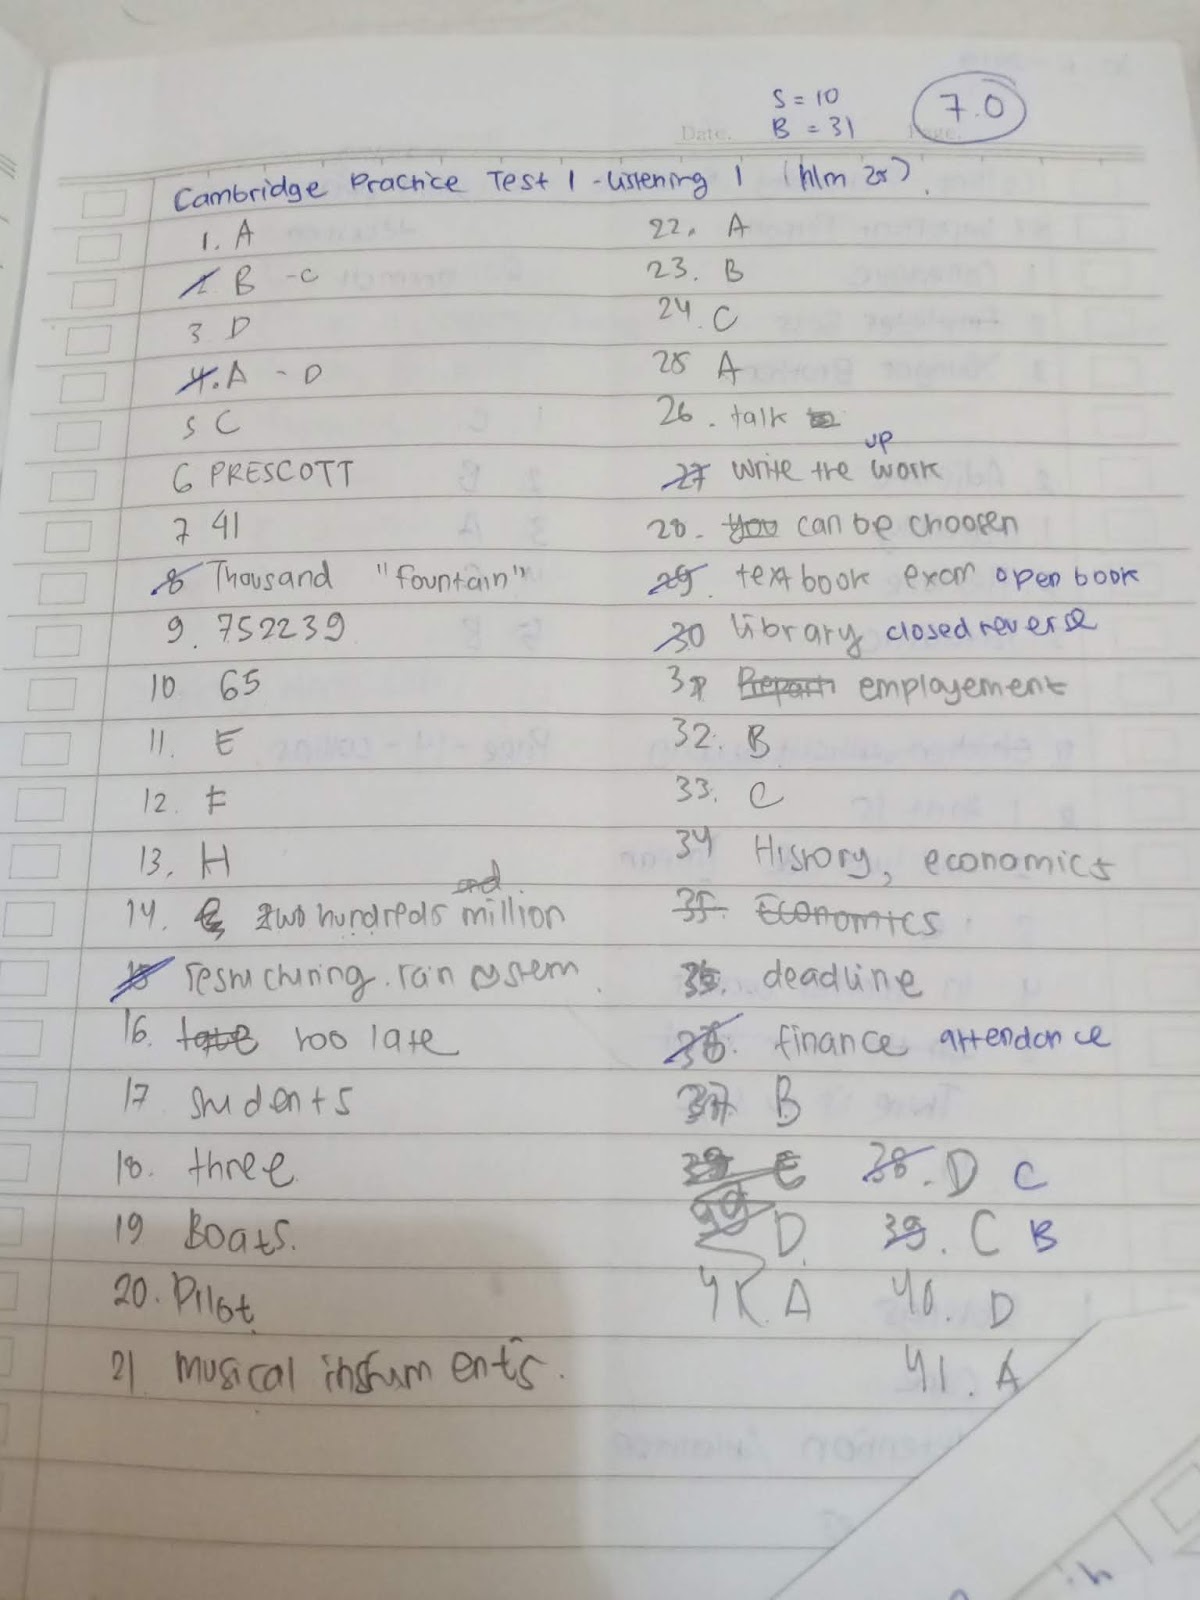 S = 10
B = 31
7.0
Date.
Page.
Cambridge Practice Test 1 - Listening 1 (hlm 28).
1. A
2. B - C
3 D
4. A - D
5 C
6 PRESCOTT
7 41
8 Thousand "fountain"
9. 752239
10 65
11. E
12. F
13. H
14. two hundreds million
15 restructuring. rain system.
16. too late
17 students
18. three
19 Boats.
20. Pilot
21 musical instruments.
22. A
23. B
24. C
25 A
26. talk
27 write the work up
28. you can be choosen
29. textbook exam open book
30 library closed reverse
31 employement
32. B
33. C
34 History, economics
35. Economics
35. deadline
36. finance attendance
37 B
38. D C
D. 39. C B
41. A 40. D
41. A